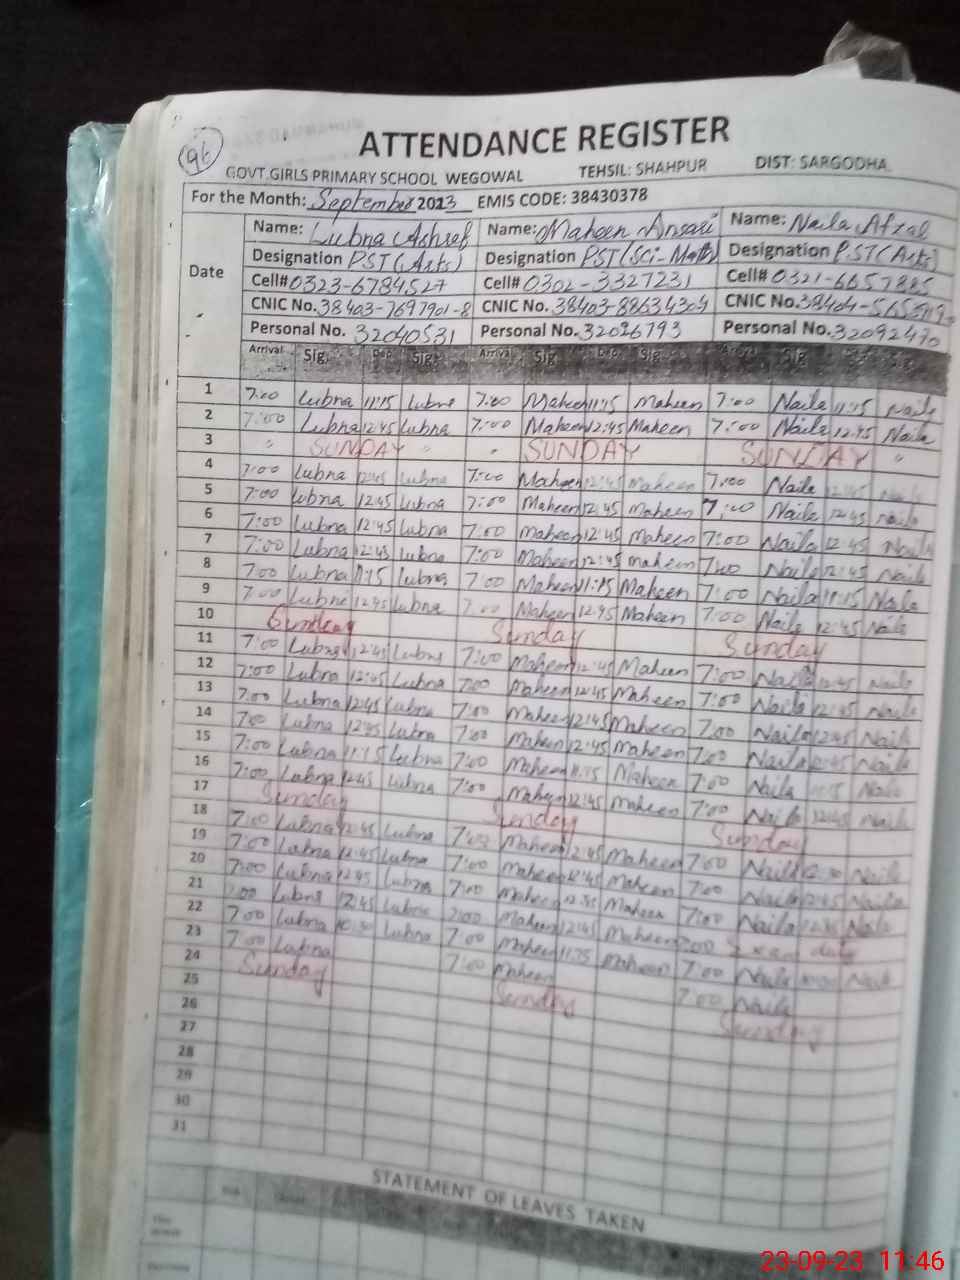 96
ATTENDANCE REGISTER
GOVT.GIRLS PRIMARY SCHOOL WEGOWAL TEHSIL: SHAHPUR DIST: SARGODHA
For the Month: September 2023 EMIS CODE: 38430378
Name: Lubna Ashref Name: Maheen Ansari Name: Naila Afzal
Designation PST (Arts) Designation PST (Sci-Math) Designation P.ST (Arts)
Date
Cell# 0323-6784527 Cell# 0302-3327231 Cell# 0321-6657885
CNIC No. 38403-7697901-8 CNIC No. CNIC No.
Personal No. 32040531 Personal No. 32026793 Personal No. 32092470
Arrival Sig. Dep. Sig. Arrival Sig. Dep. Sig. Sig
1 7:00 Lubna 11:15 Lubna 7:00 Maheen 11:15 Maheen 7:00 Naila 11:15 Naila
2 7:00 Lubna 12:45 Lubna 7:00 Maheen 12:45 Maheen 7:00 Naila 12:45 Naila
3 SUNDAY SUNDAY SUNDAY
4 7:00 Lubna 12:45 Lubna 7:00 Maheen 12:45 Maheen 7:00 Naila 12:45 Naila
5 7:00 Lubna 12:45 Lubna 7:00 Maheen 12:45 Maheen 7:00 Naila 12:45 Naila
6 7:00 Lubna 12:45 Lubna 7:00 Maheen 12:45 Maheen 7:00 Naila 12:45 Naila
7 7:00 Lubna 12:45 Lubna 7:00 Maheen 12:45 Maheen 7:00 Naila 12:45 Naila
8 7:00 Lubna 11:15 Lubna 7:00 Maheen 11:15 Maheen 7:00 Naila 11:15 Naila
9 7:00 Lubna 12:45 Lubna 7:00 Maheen 12:45 Maheen 7:00 Naila 12:45 Naila
10 Sunday Sunday Sunday
11 7:00 Lubna 12:45 Lubna 7:00 Maheen 12:45 Maheen 7:00 Naila 12:45 Naila
12 7:00 Lubna 12:45 Lubna 7:00 Maheen 12:45 Maheen 7:00 Naila 12:45 Naila
13 7:00 Lubna 12:45 Lubna 7:00 Maheen 12:45 Maheen 7:00 Naila 12:45 Naila
14 7:00 Lubna 12:45 Lubna 7:00 Maheen 12:45 Maheen 7:00 Naila 12:45 Naila
15 7:00 Lubna 11:15 Lubna 7:00 Maheen 11:15 Maheen 7:00 Naila 11:15 Naila
16 7:00 Lubna 12:45 Lubna 7:00 Maheen 12:45 Maheen 7:00 Naila 12:45 Naila
17 Sunday Sunday Sunday
18 7:00 Lubna 12:45 Lubna 7:00 Maheen 12:45 Maheen 7:00 Naila Naila
19 7:00 Lubna 12:45 Lubna 7:00 Maheen 12:45 Maheen 7:00 Naila 12:45 Naila
20 7:00 Lubna 12:45 Lubna 7:00 Maheen Maheen 7:00 Naila Naila
21 7:00 Lubna 12:45 Lubna 7:00 Maheen 12:45 Maheen 7:00 duty
22 7:00 Lubna Lubna 7:00 Maheen 11:15 Maheen 7:00 Naila Naila
23 7:00 Lubna 7:00 Maheen 7:00 Naila
24 Sunday Sunday Sunday
25
26
27
28
29
30
31
STATEMENT OF LEAVES TAKEN
23-09-23 11:46